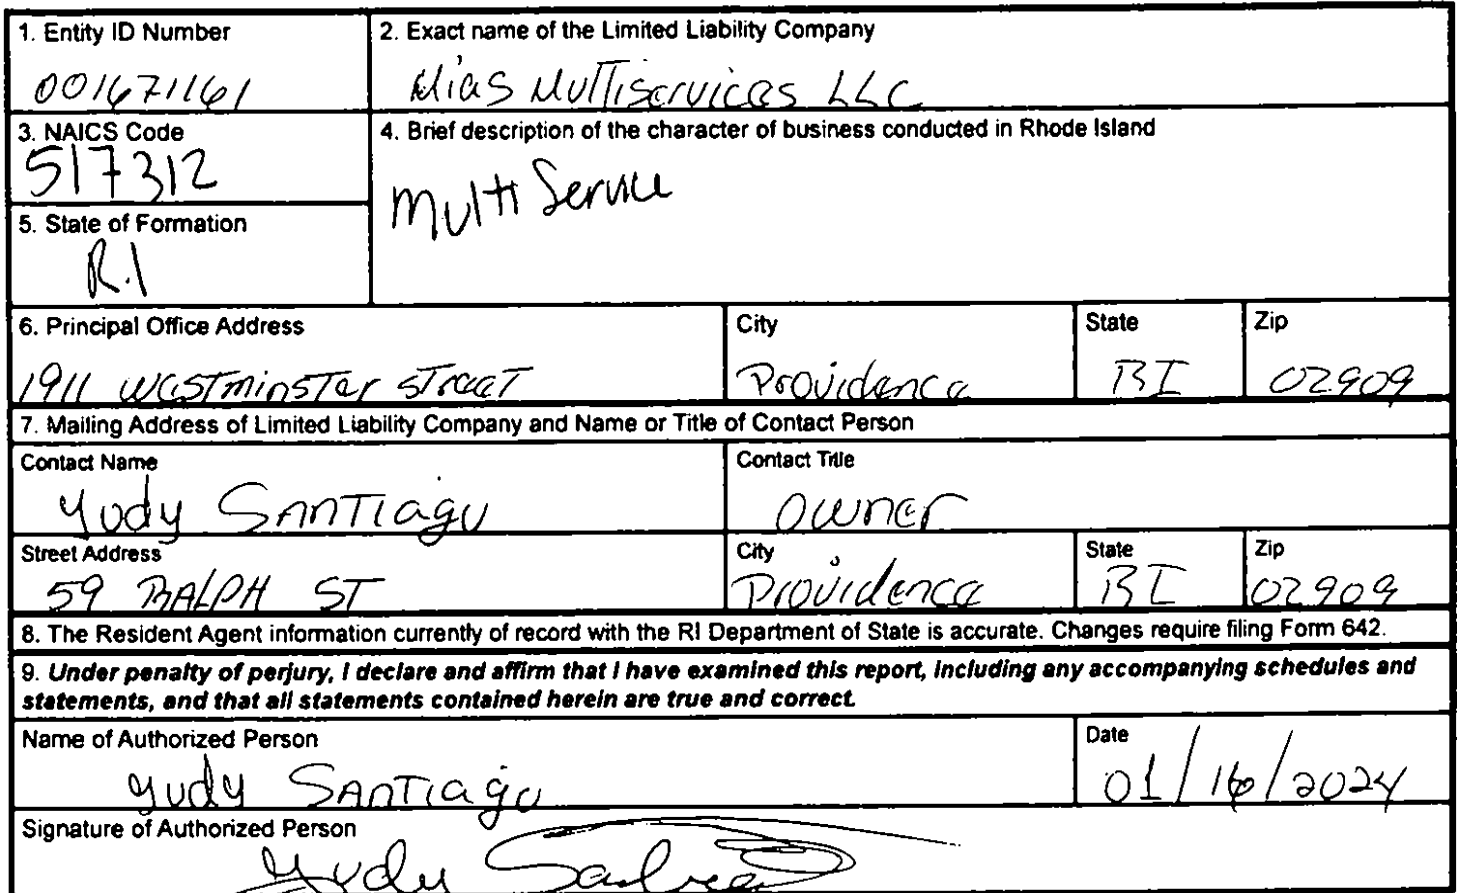 1. Entity ID Number
001671161
2. Exact name of the Limited Liability Company
Alias Multiservices LLC
3. NAICS Code
517312
4. Brief description of the character of business conducted in Rhode Island
Multi Service
5. State of Formation
R.I
6. Principal Office Address
1911 Westminster Street
City
Providence
State
RI
Zip
02909
7. Mailing Address of Limited Liability Company and Name or Title of Contact Person
Contact Name
Yudy Santiago
Contact Title
Owner
Street Address
59 RALPH ST
City
Providence
State
RI
Zip
02909
8. The Resident Agent information currently of record with the RI Department of State is accurate. Changes require filing Form 642.
9. Under penalty of perjury, I declare and affirm that I have examined this report, including any accompanying schedules and
statements, and that all statements contained herein are true and correct.
Name of Authorized Person
Yudy Santiago
Date
01/16/2024
Signature of Authorized Person
Yudy